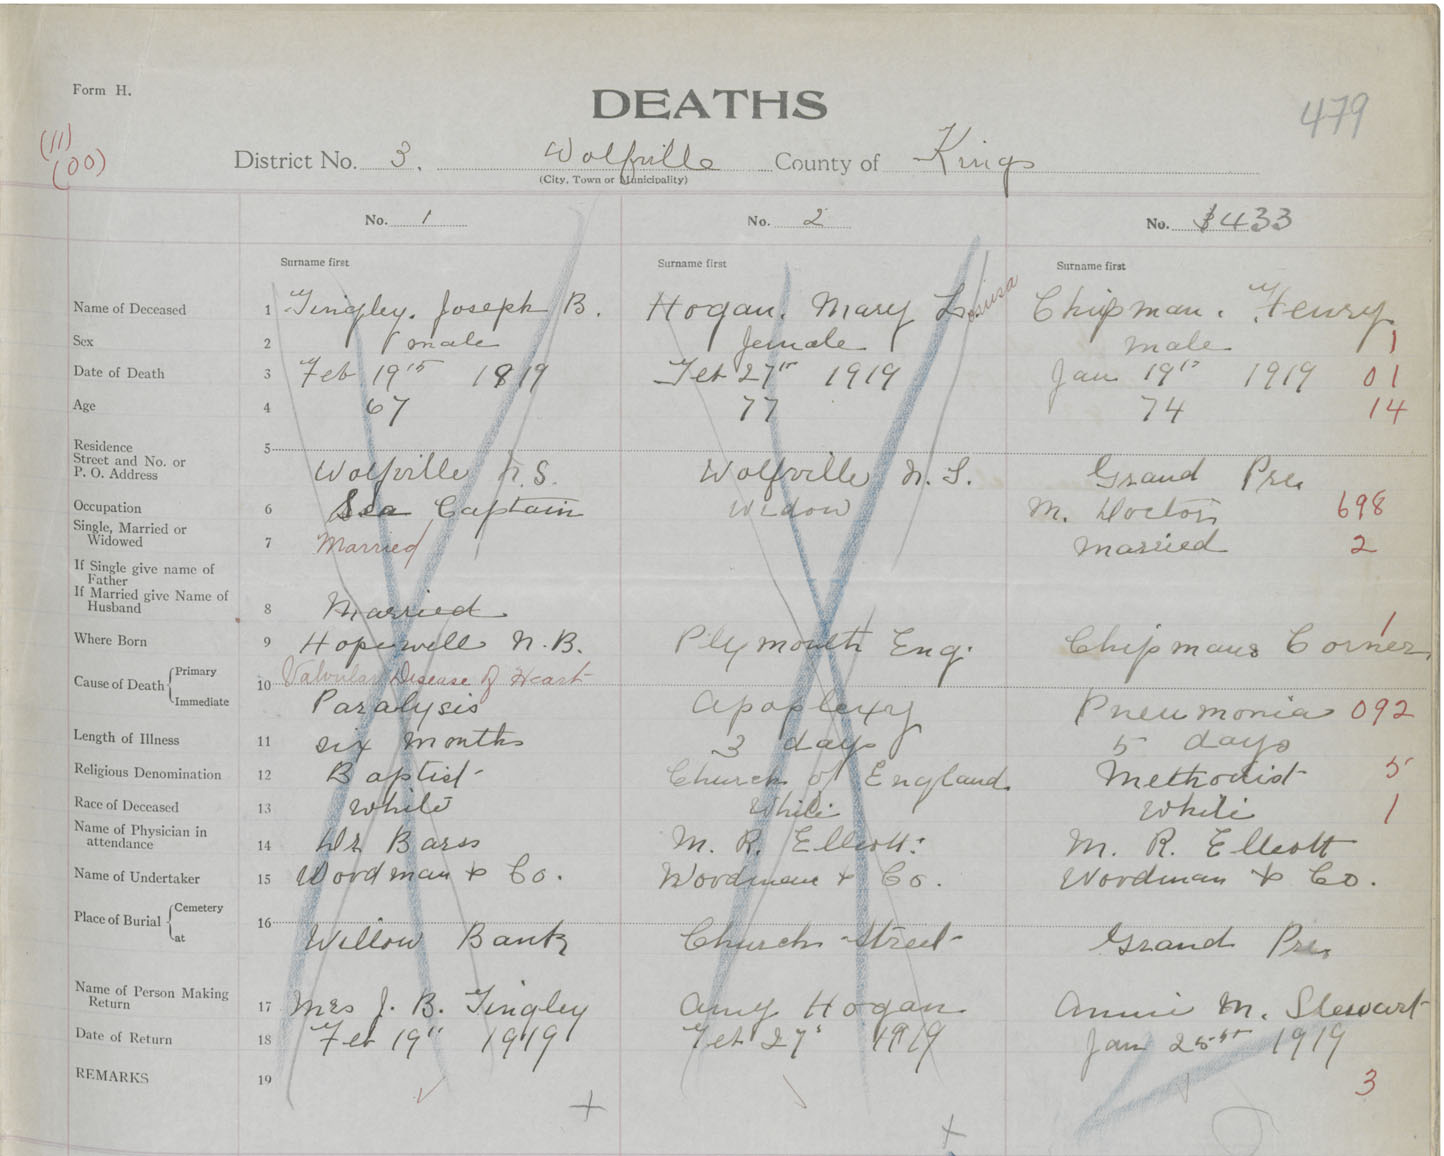 Form H.
DEATHS
479
(11)
(00)
District No. 3. Wolfville County of Kings
(City, Town or Municipality)
No. 1 No. 2 No. 433
Surname first Surname first Surname first
Name of Deceased 1 Tingley, Joseph B. Hogan, Mary Louisa Chipman, Henry
Sex 2 male female male 1
Date of Death 3 Feb 19th 1819 Feb 27th 1919 Jan 19th 1919 01
Age 4 67 77 74 14
Residence
Street and No. or
P. O. Address 5 Wolfville N.S. Wolfville N.S. Grand Pre
Occupation 6 Sea Captain Widow M. Doctor 698
Single, Married or
Widowed 7 Married Married 2
If Single give name of
Father
If Married give Name of
Husband 8 Married
Where Born 9 Hopewell N.B. Plymouth Eng. Chipmans Corner 1
Cause of Death Primary 10 Valvular Disease of Heart
Immediate Paralysis Apoplexy Pneumonia 092
Length of Illness 11 six months 3 days 5 days
Religious Denomination 12 Baptist Church of England Methodist 5
Race of Deceased 13 white White White 1
Name of Physician in
attendance 14 Dr Barss M. R. Elliott M. R. Elliott
Name of Undertaker 15 Woodman & Co. Woodman & Co. Woodman & Co.
Place of Burial Cemetery 16
at Willow Bank Church Street Grand Pre
Name of Person Making
Return 17 Mrs J. B. Tingley Amy Hogan Annie M. Stewart
Date of Return 18 Feb 19th 1919 Feb 27th 1919 Jan 25th 1919
REMARKS 19 3